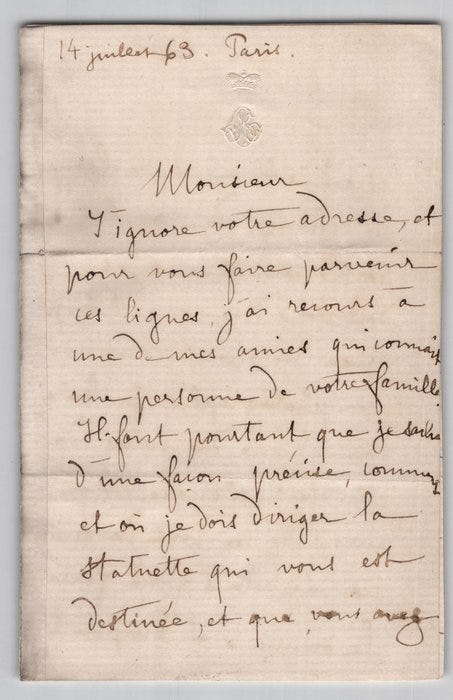 14 juillet 63. Paris.
Monsieur
J'ignore votre adresse, et
pour vous faire parvenir
ces lignes, j'ai recours à
une de mes amies qui connait
une personne de votre famille.
Il faut pourtant que je sache
d'une façon précise, comment
et où je dois diriger la
statuette qui vous est
destinée, et que vous avez